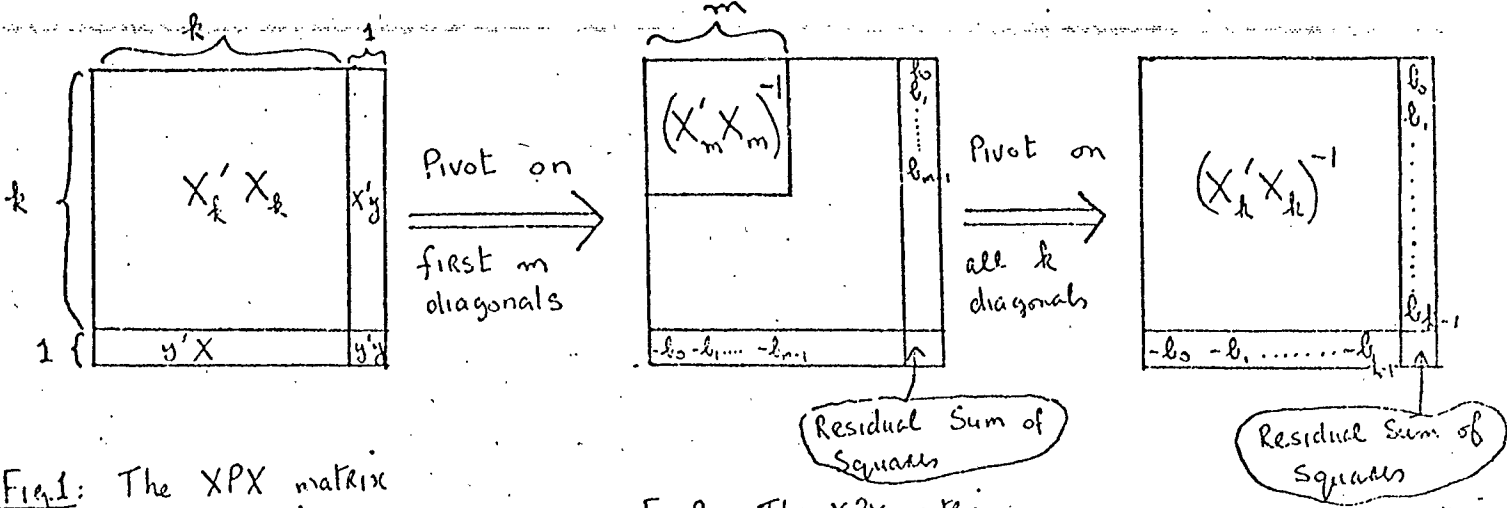 k
1
m
k
X'ₖ Xₖ
X'y
1
y'X
y'y
Pivot on
first m
diagonals
(X'ₘ Xₘ)⁻¹
b₀
b₁
......
bₘ₋₁
-b₀ -b₁ .... -bₘ₋₁
Residual Sum of
Squares
Pivot on
all k
diagonals
(X'ₖ Xₖ)⁻¹
b₀
b₁
........
bₖ₋₁
-b₀ -b₁ ........ -bₖ₋₁
Residual Sum of
Squares
Fig.1: The XPX matrix